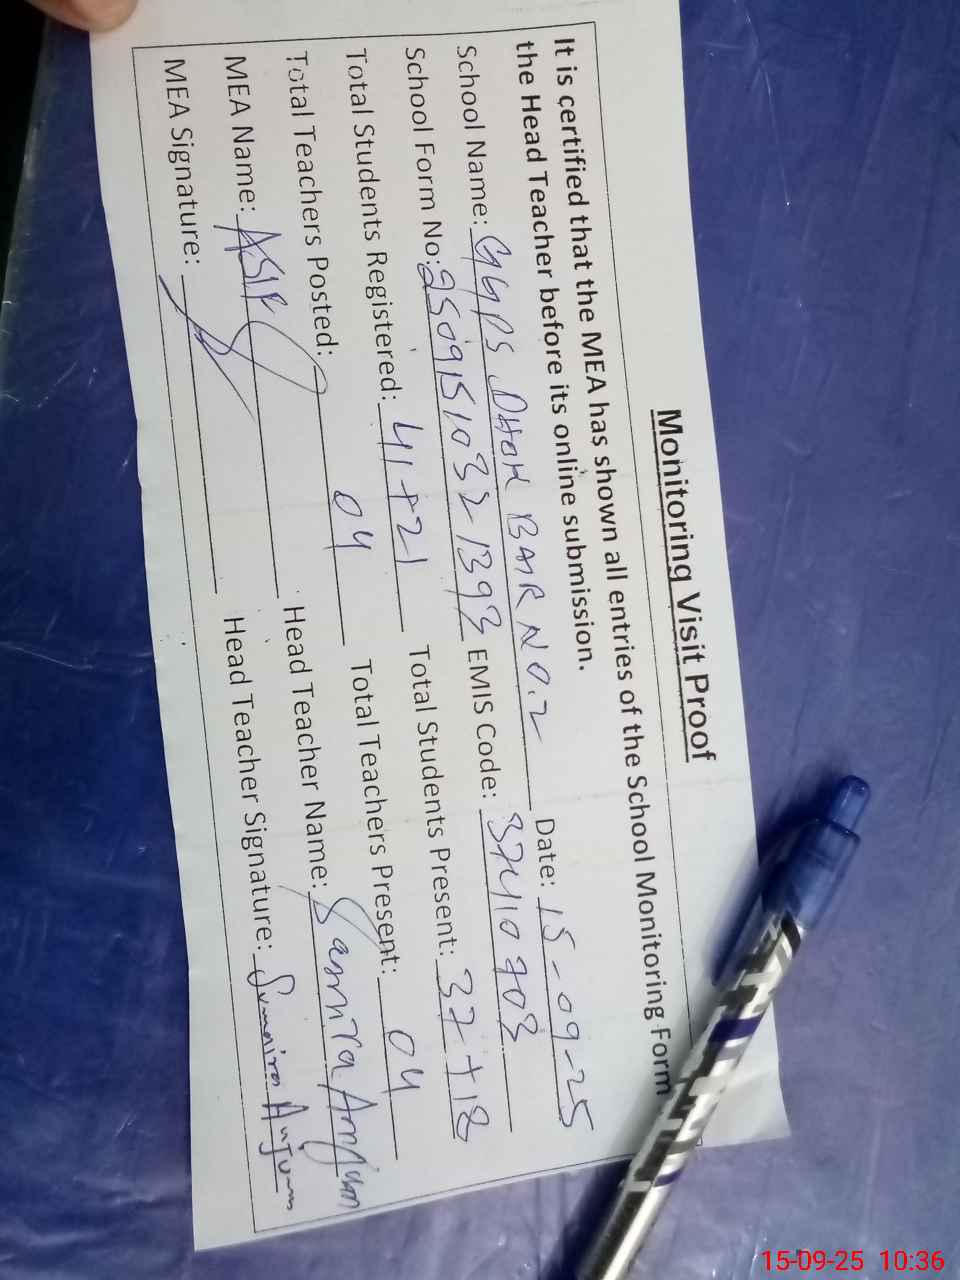 Monitoring Visit Proof
It is certified that the MEA has shown all entries of the School Monitoring Form
the Head Teacher before its online submission.
School Name: GGPS DHOK BAIR NO.2 Date: 15-09-25
School Form No: 25091510321393 EMIS Code: 37410903
Total Students Registered: 41+21 Total Students Present: 37+18
Total Teachers Posted: 04 Total Teachers Present: 04
MEA Name: ASIF Head Teacher Name: Anjum
MEA Signature: Head Teacher Signature: Sumaira Anjum
15-09-25 10:36